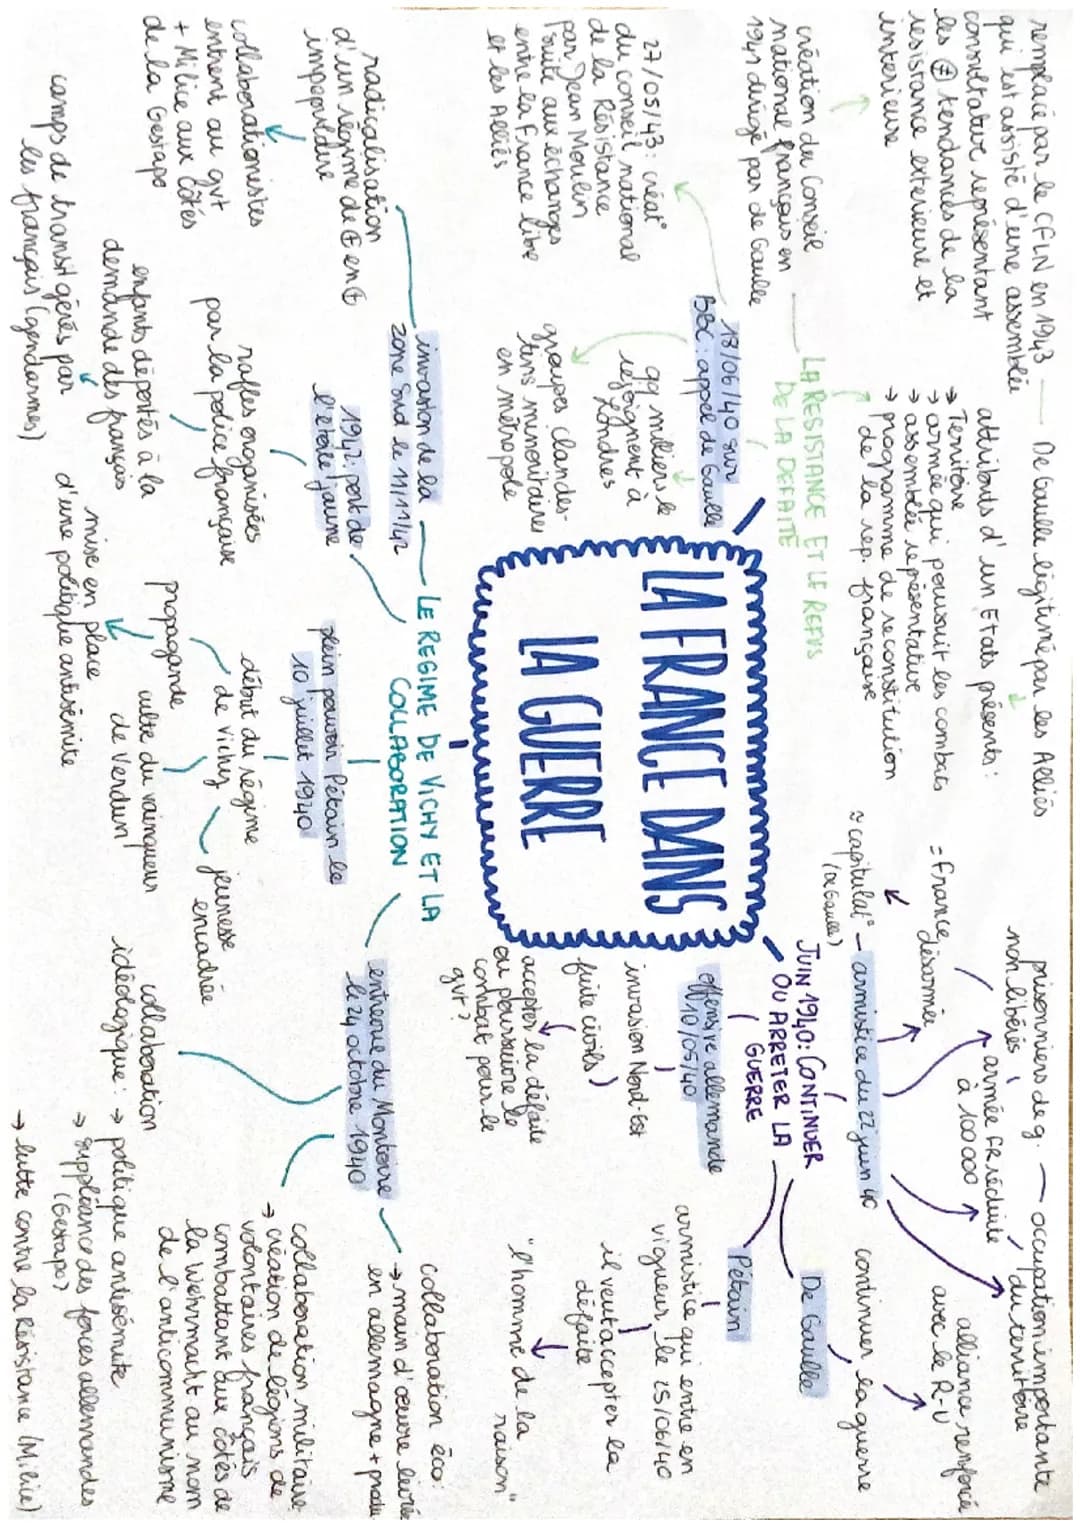 LA FRANCE DANS
LA GUERRE
JUIN 1940: CONTINUER
OU ARRETER LA
GUERRE
De Gaulle
continuer la guerre
alliance renforcée
avec le R-U
Pétain
armistice qui entre en
vigueur le 25/06/40
il veut accepter la
défaite
"l'homme de la
raison"
offensive allemande
10/05/40
invasion Nord-Est
fuite civils
accepter la défaite
ou poursuivre le
combat pour le
gvt?
armistice du 22 juin 40
≠ capitulat°
(De Gaulle)
= France
désarmée
prisonniers de g.
non libérés
armée FR réduite
à 100 000
occupation importante
du territoire
LA RESISTANCE ET LE REFUS
DE LA DEFAITE
18/06/40 sur
BBC: appel de Gaulle
qq milliers le
rejoignent à
Londres
groupes clandes-
tins minoritaires
en métropole
27/05/43: créat°
du conseil national
de la Résistance
par Jean Moulin
suite aux échanges
entre la France libre
et les Alliés
création du Conseil
national français en
1941 dirigé par de Gaulle
remplacé par le CFLN en 1943
qui est assisté d'une assemblée
consultative représentant
les ≠ tendances de la
résistance extérieure et
intérieure
De Gaulle légitimé par les Alliés
attributs d'un Etats présents:
→ Territoire
→ armée qui poursuit les combats
→ assemblée représentative
→ programme de reconstitution
de la rep. française
LE REGIME DE VICHY ET LA
COLLABORATION
invasion de la
zone Sud le 11/11/42
radicalisation
d'un régime de + en +
impopulaire
collaborationistes
entrent au gvt
+ Milice aux côtés
de la Gestapo
1942: port de
l'étoile jaune
rafles organisées
par la police française
enfants déportés à la
demande des français
camps de transit gérés par
les français (gendarmes)
plein pouvoir Pétain le
10 juillet 1940
début du régime
de Vichy
jeunesse
encadrée
propagande
culte du vainqueur
de Verdun
mise en place
d'une politique antisémite
entrevue du Montoire
le 24 octobre 1940
collaboration éco:
→ main d'œuvre livrée
en allemagne + produ
collaboration militaire
→ création de légions de
volontaires français
combattant aux côtés de
la Wehrmacht au nom
de l'anticommunisme
collaboration
idéologique: → politique antisémite
→ suppléance des forces allemandes
(Gestapo)
→ lutte contre la Résistance (Milice)